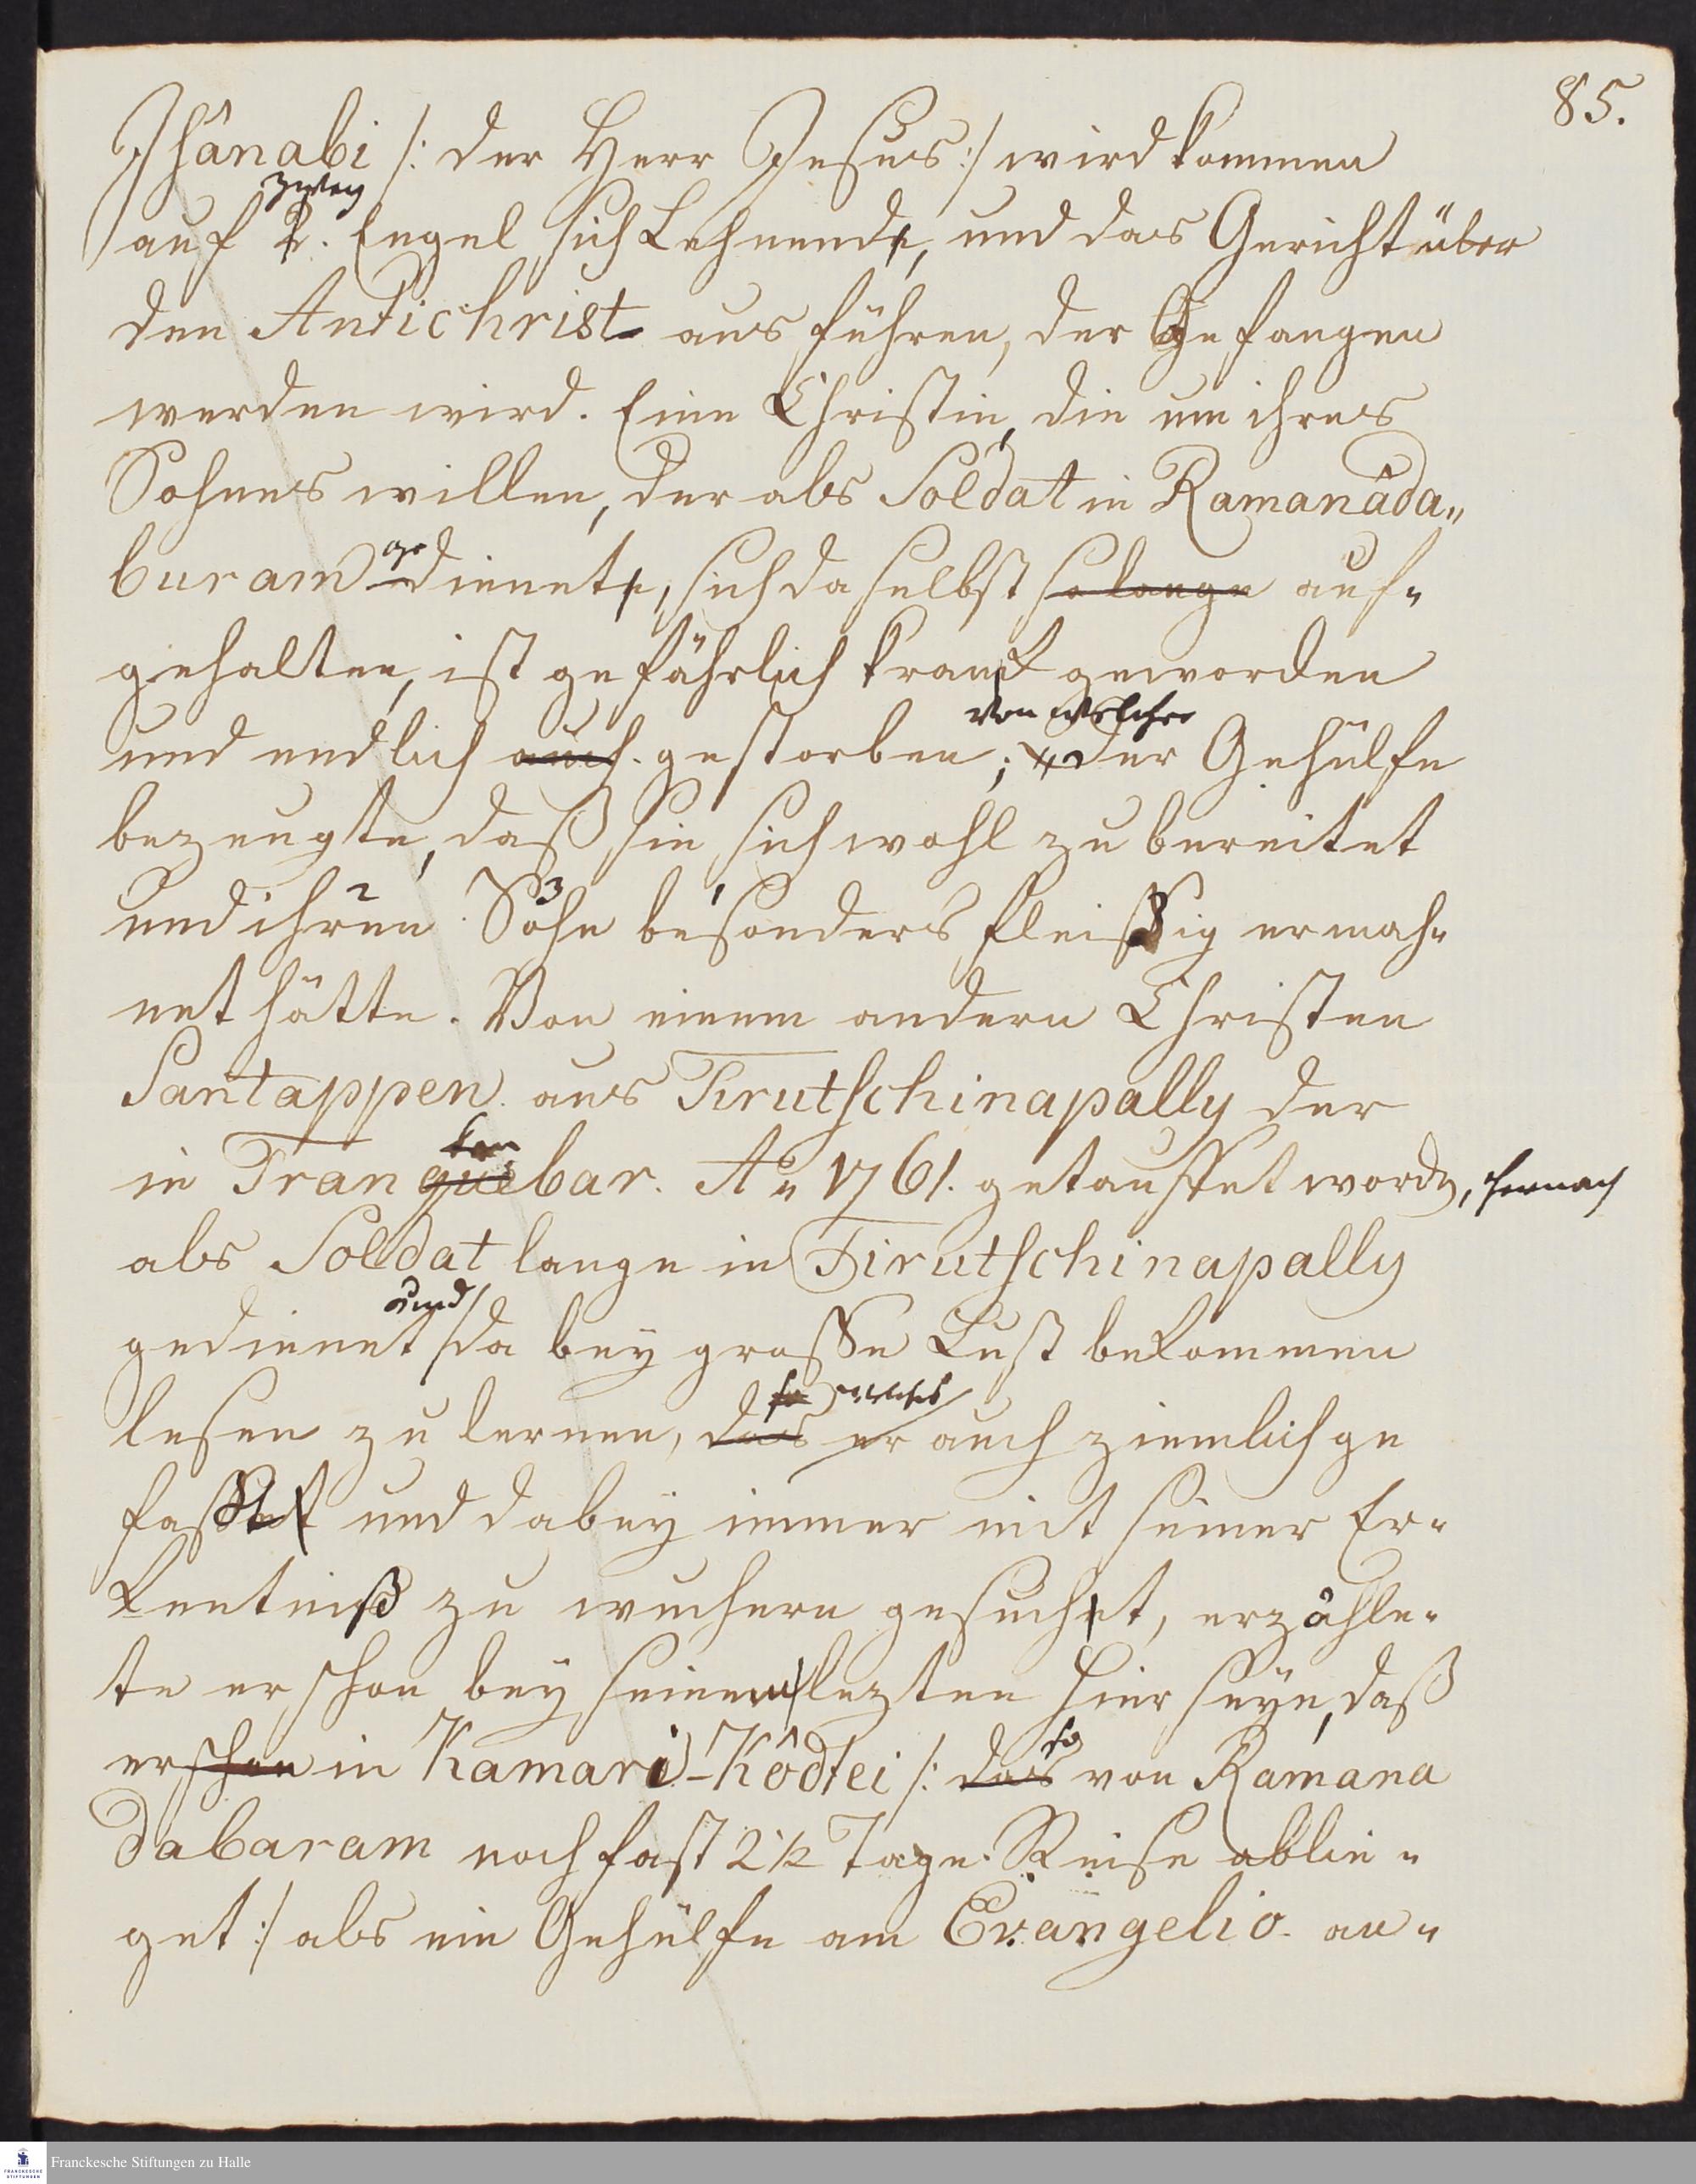 85.
Ihânabi /: der Herr Jesus :/ wird kommen
zwey
auf 2. Engel sich Lehnende, und das Gericht über
den Antichrist aus führen, der Gefangen
werden wird. Eine Christin, die um ihres
Sohnes willen, der als Soldat in Ramanâda„
buram gedienete, sich daselbst so lange auf-
gehalten, ist gefährlich krank geworden
von welcher
und endlich auch gestorben; der Gehülfe
bezeugte, daß sie sich wohl zu bereitet
und ihren 2 Sohn 3 besonders 1 fleißig ermah-
net hätte. Von einem andern Christen
Santappen aus Tirutschinapally der
kan
in Tranquebar. Ao 1761. getauffet wordn, hernach
als Soldat lange in Tirutschinapally
und
gedienet da bey große Lust bekommen
so welches
lesen zu lernen, das er auch ziemlich ge
faßet und dabey immer mit seiner Er-
kentniß zu wuchern gesuchet, erzähle-
te er schon bey seinem lezten hier seyn, daß
so
er schon in Kamari-Kôdtei /: das von Ramana
daburam noch fast 2 1/2 Tage Reise ablie-
get :/ als ein Gehülfe am Evangelio an-
Franckesche Stiftungen zu Halle